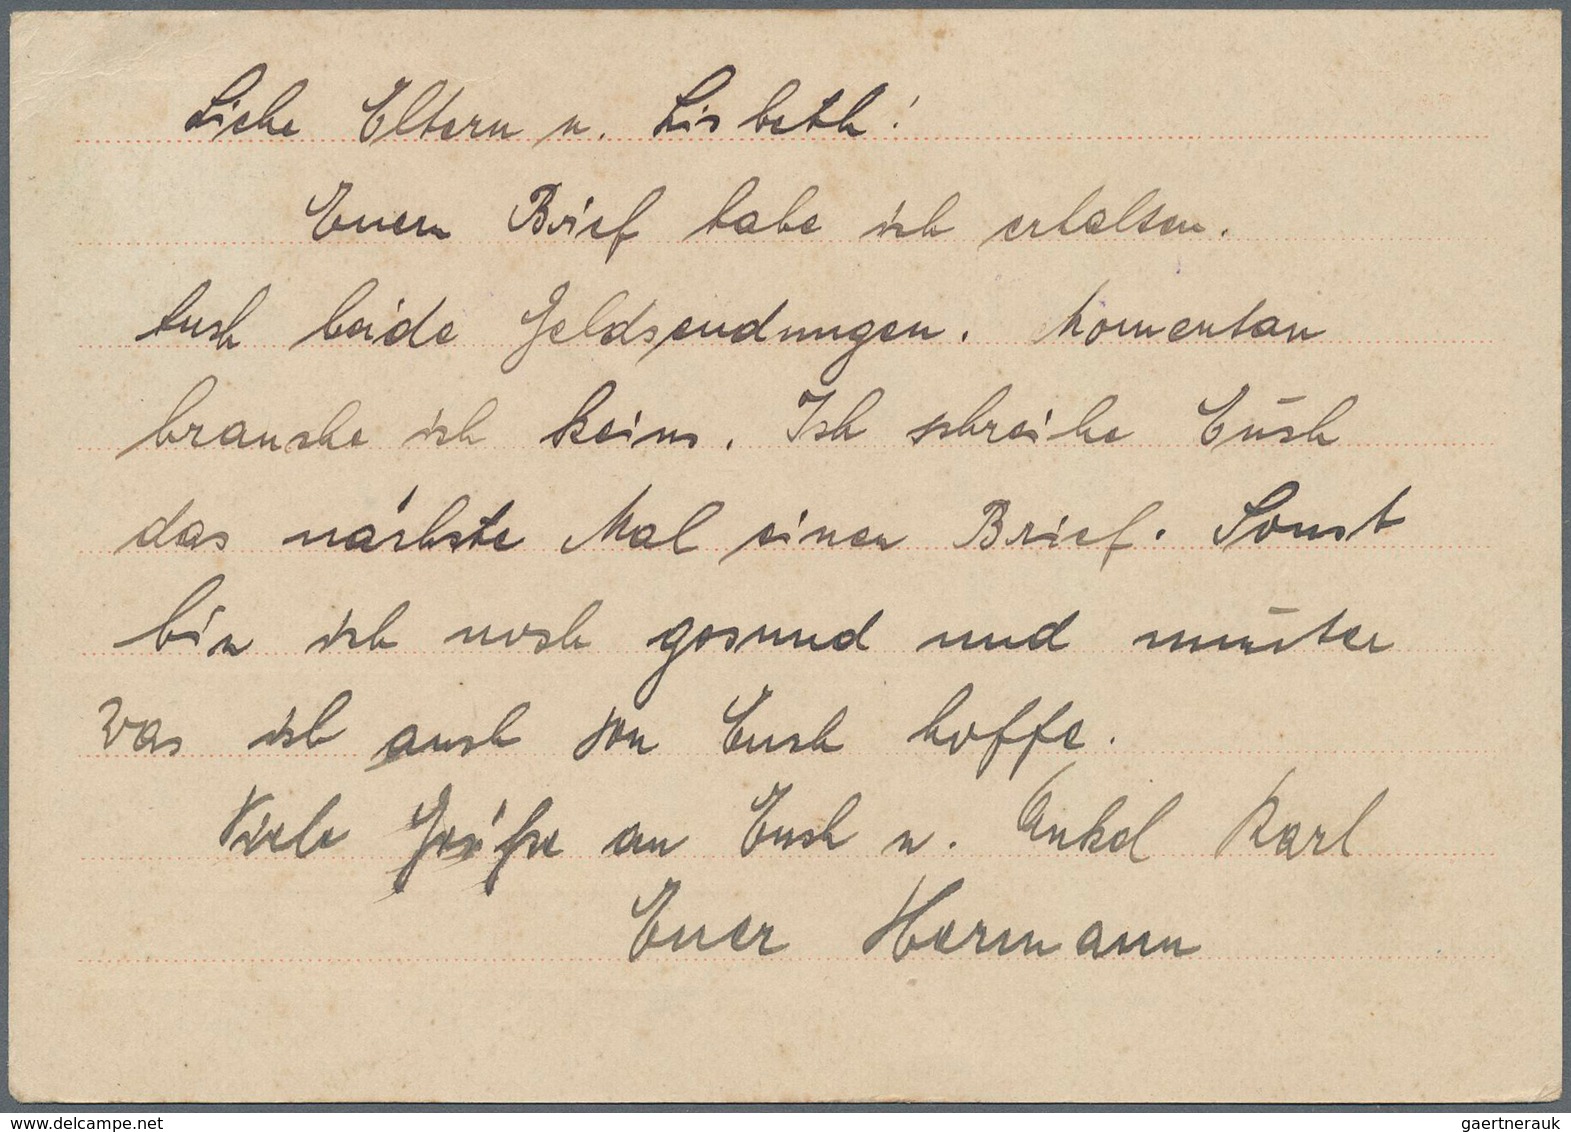 Liebe Eltern u. Lisbeth!
Euern Brief habe ich erhalten.
Auch beide Geldsendungen. Momentan
brauche ich keins. Ich schreibe Euch
das nächste Mal einen Brief. Sonst
bin ich noch gesund und munter
was ich auch von Euch hoffe.
Viele Grüße an Euch u. Onkel Karl
Euer Hermann
www.delcampe.net
gaertnerauk